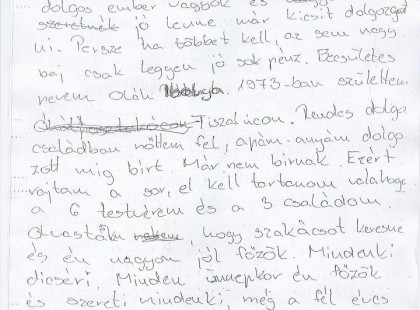 dolgos ember vagyok és
szeretnék jó lenne már kicsit dolgozgat
ni. Persze ha többet kell, az sem nagy
baj csak legyen jó sok pénz. Becsületes
nevem Oláh Ibolya. 1973-ban születtem
Tiszalúcon. Rendes dolgo
családban nőttem fel, apám-anyám dolgo
zott míg birt. Már nem birnak. Ezért
rajtam a sor, el kell tartanom valahogy
a 6 testvérem és a 3 családom.
Olvastam, hogy szakácsot keresne
és én nagyon jól főzök. Mindenki
dicséri. Minden ünnepkor én főzök
és szereti mindenki, még a fél éves